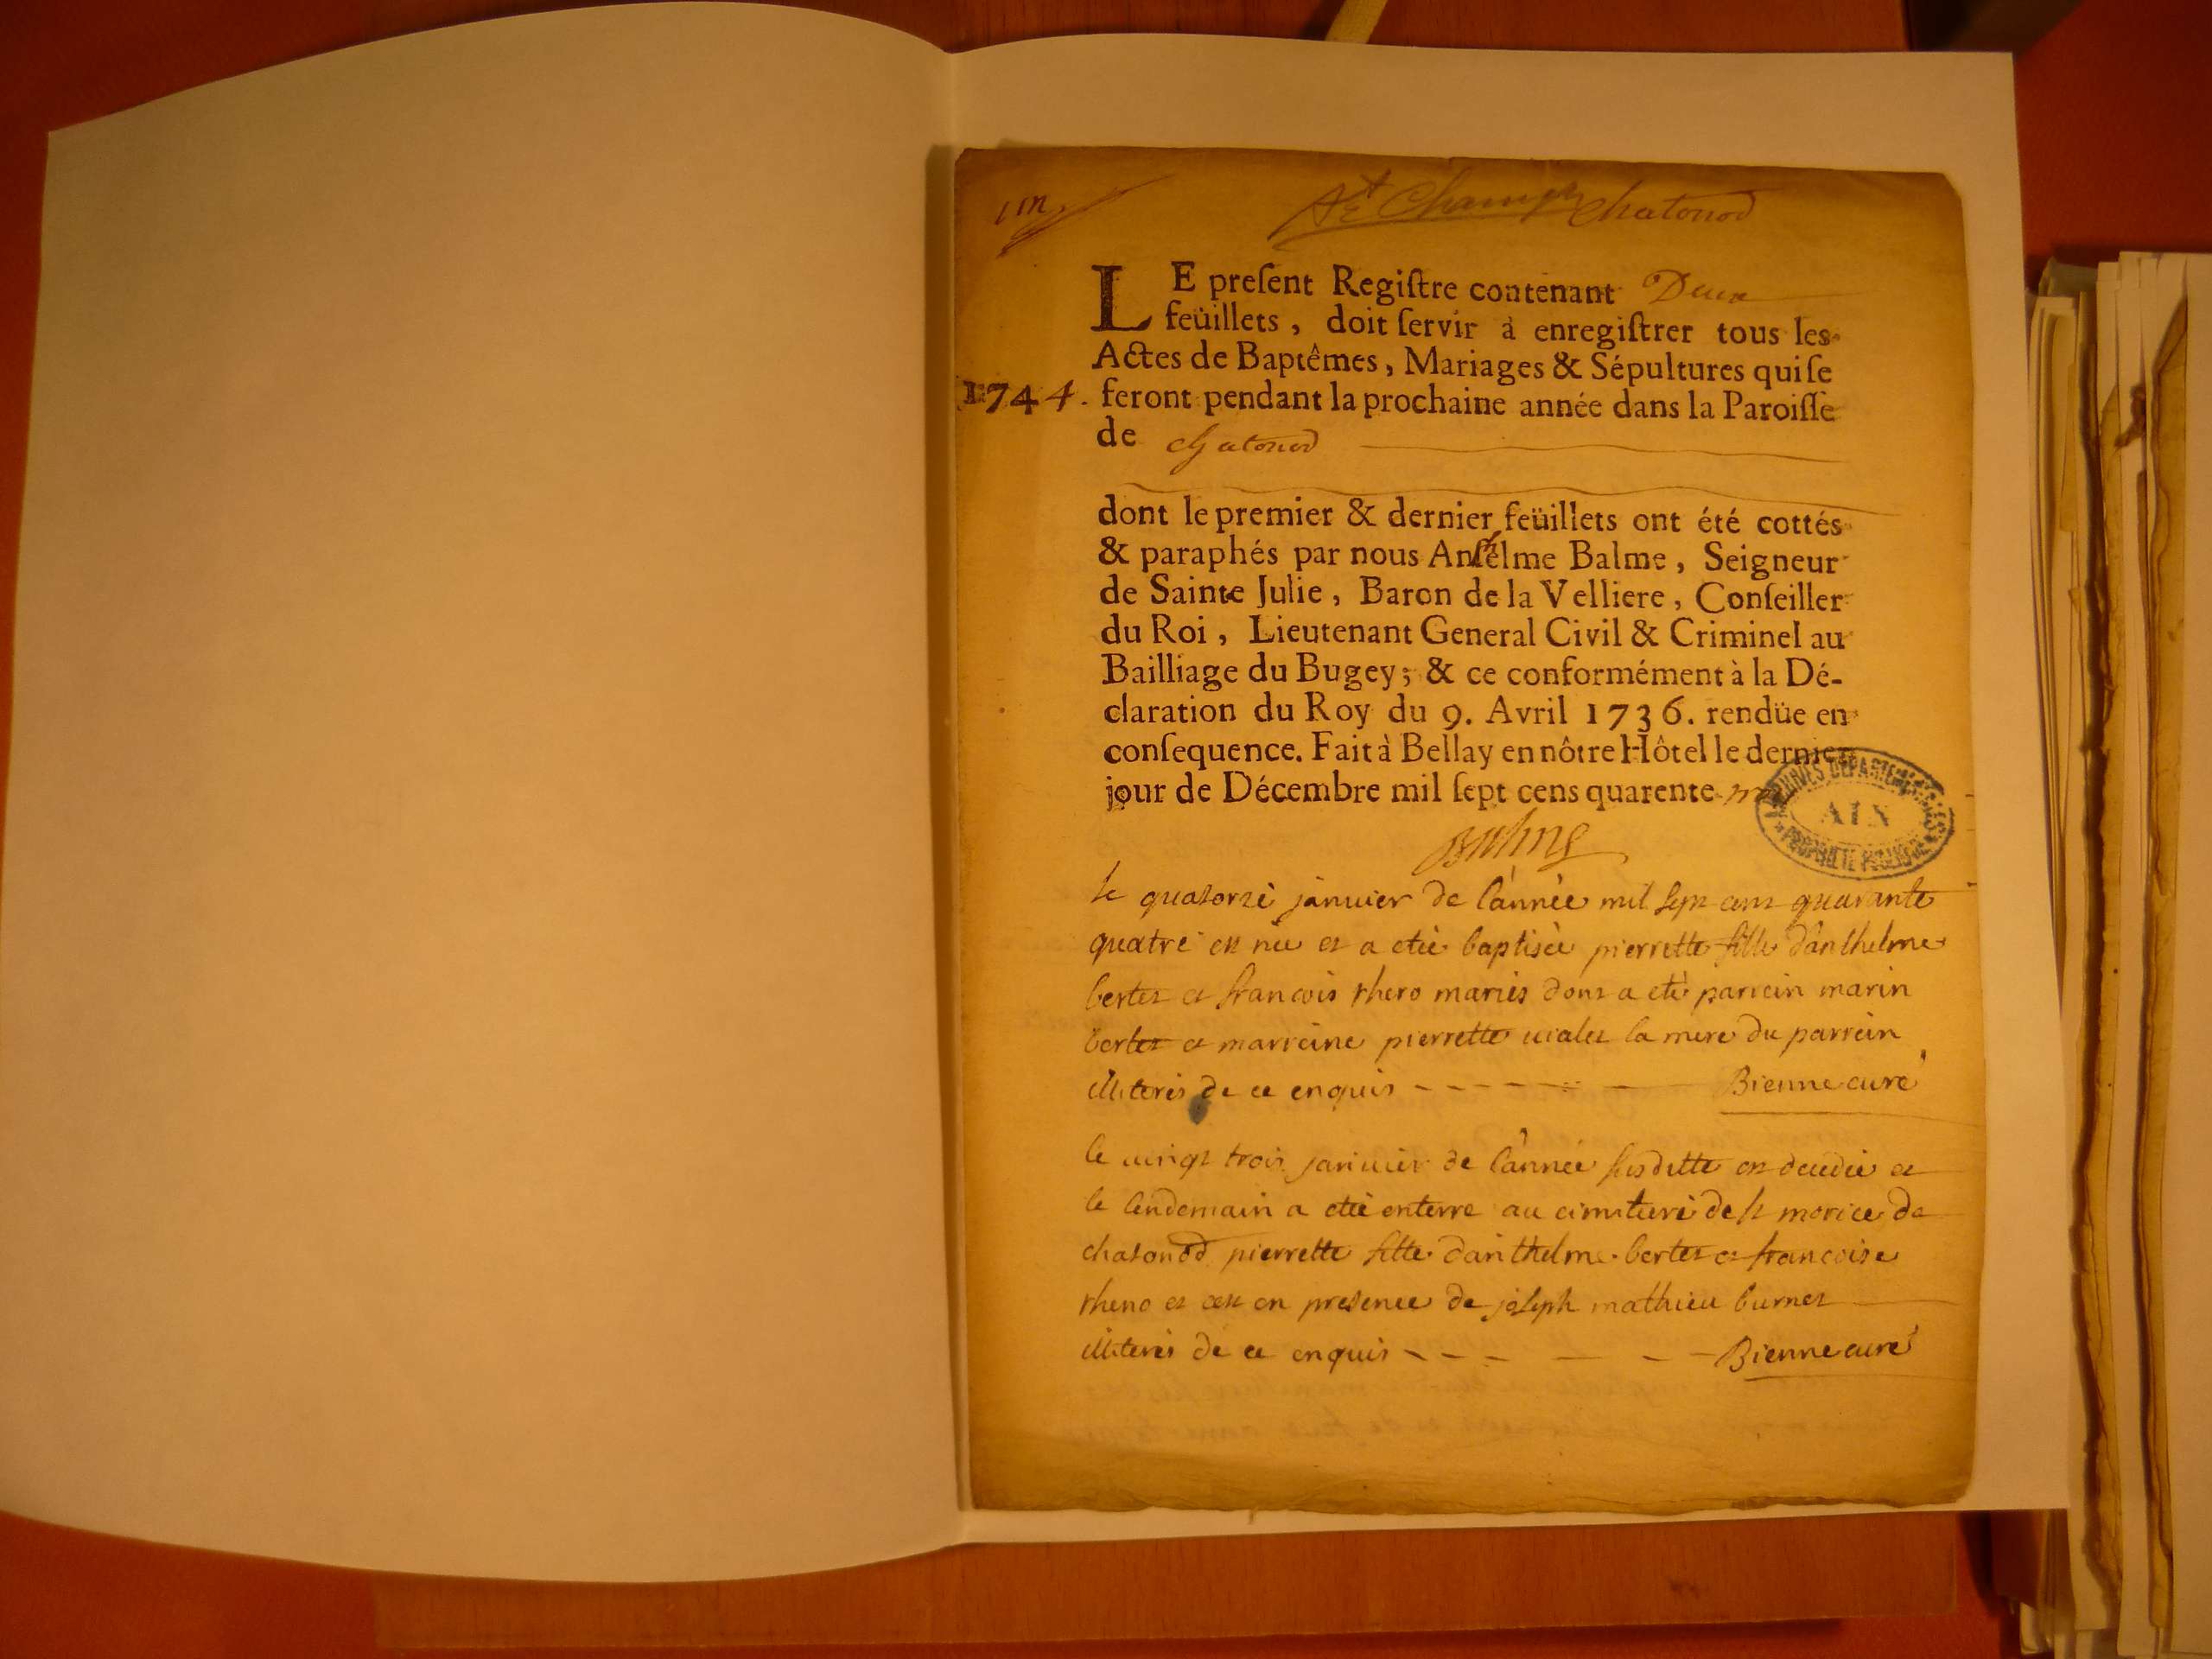 un
St Champ Chatonod
LE preſent Regiſtre contenant Deux
feüillets, doit ſervir à enregiſtrer tous les
Actes de Baptêmes, Mariages & Sépultures qui ſe
1744. feront pendant la prochaine année dans la Paroiſſe
de Chatonod
dont le premier & dernier feüillets ont été cottés
& paraphés par nous Anthelme Balme, Seigneur
de Sainte Julie, Baron de la Velliere, Conſeiller
du Roi, Lieutenant General Civil & Criminel au
Bailliage du Bugey; & ce conformément à la Dé-
claration du Roy du 9. Avril 1736. rendüe en
conſequence. Fait à Bellay en nôtre Hôtel le dernier
jour de Décembre mil ſept cens quarente trois
ARCHIVES DEPARTEMENTALES
AIN
PROPRIETE PUBLIQUE
Balme
le quatorze janvier de l'année mil sept cens quarante
quatre est née et a etée baptisée pierrette fille d'anthelme
bertet et francois rheno mariés dont a eté parrein marin
bertet et marreine pierrette uialet la mere du parrein
illiterés de ce enquis Bienne curé
le uingt trois januier de l'année susditte est decedée et
le lendemain a etée enterre au cimitiere de st morice de
chatonod pierrette fille danthelme bertet et francoise
rheno et cest en presence de joseph mathieu burnet
illiterés de ce enquis Bienne curé